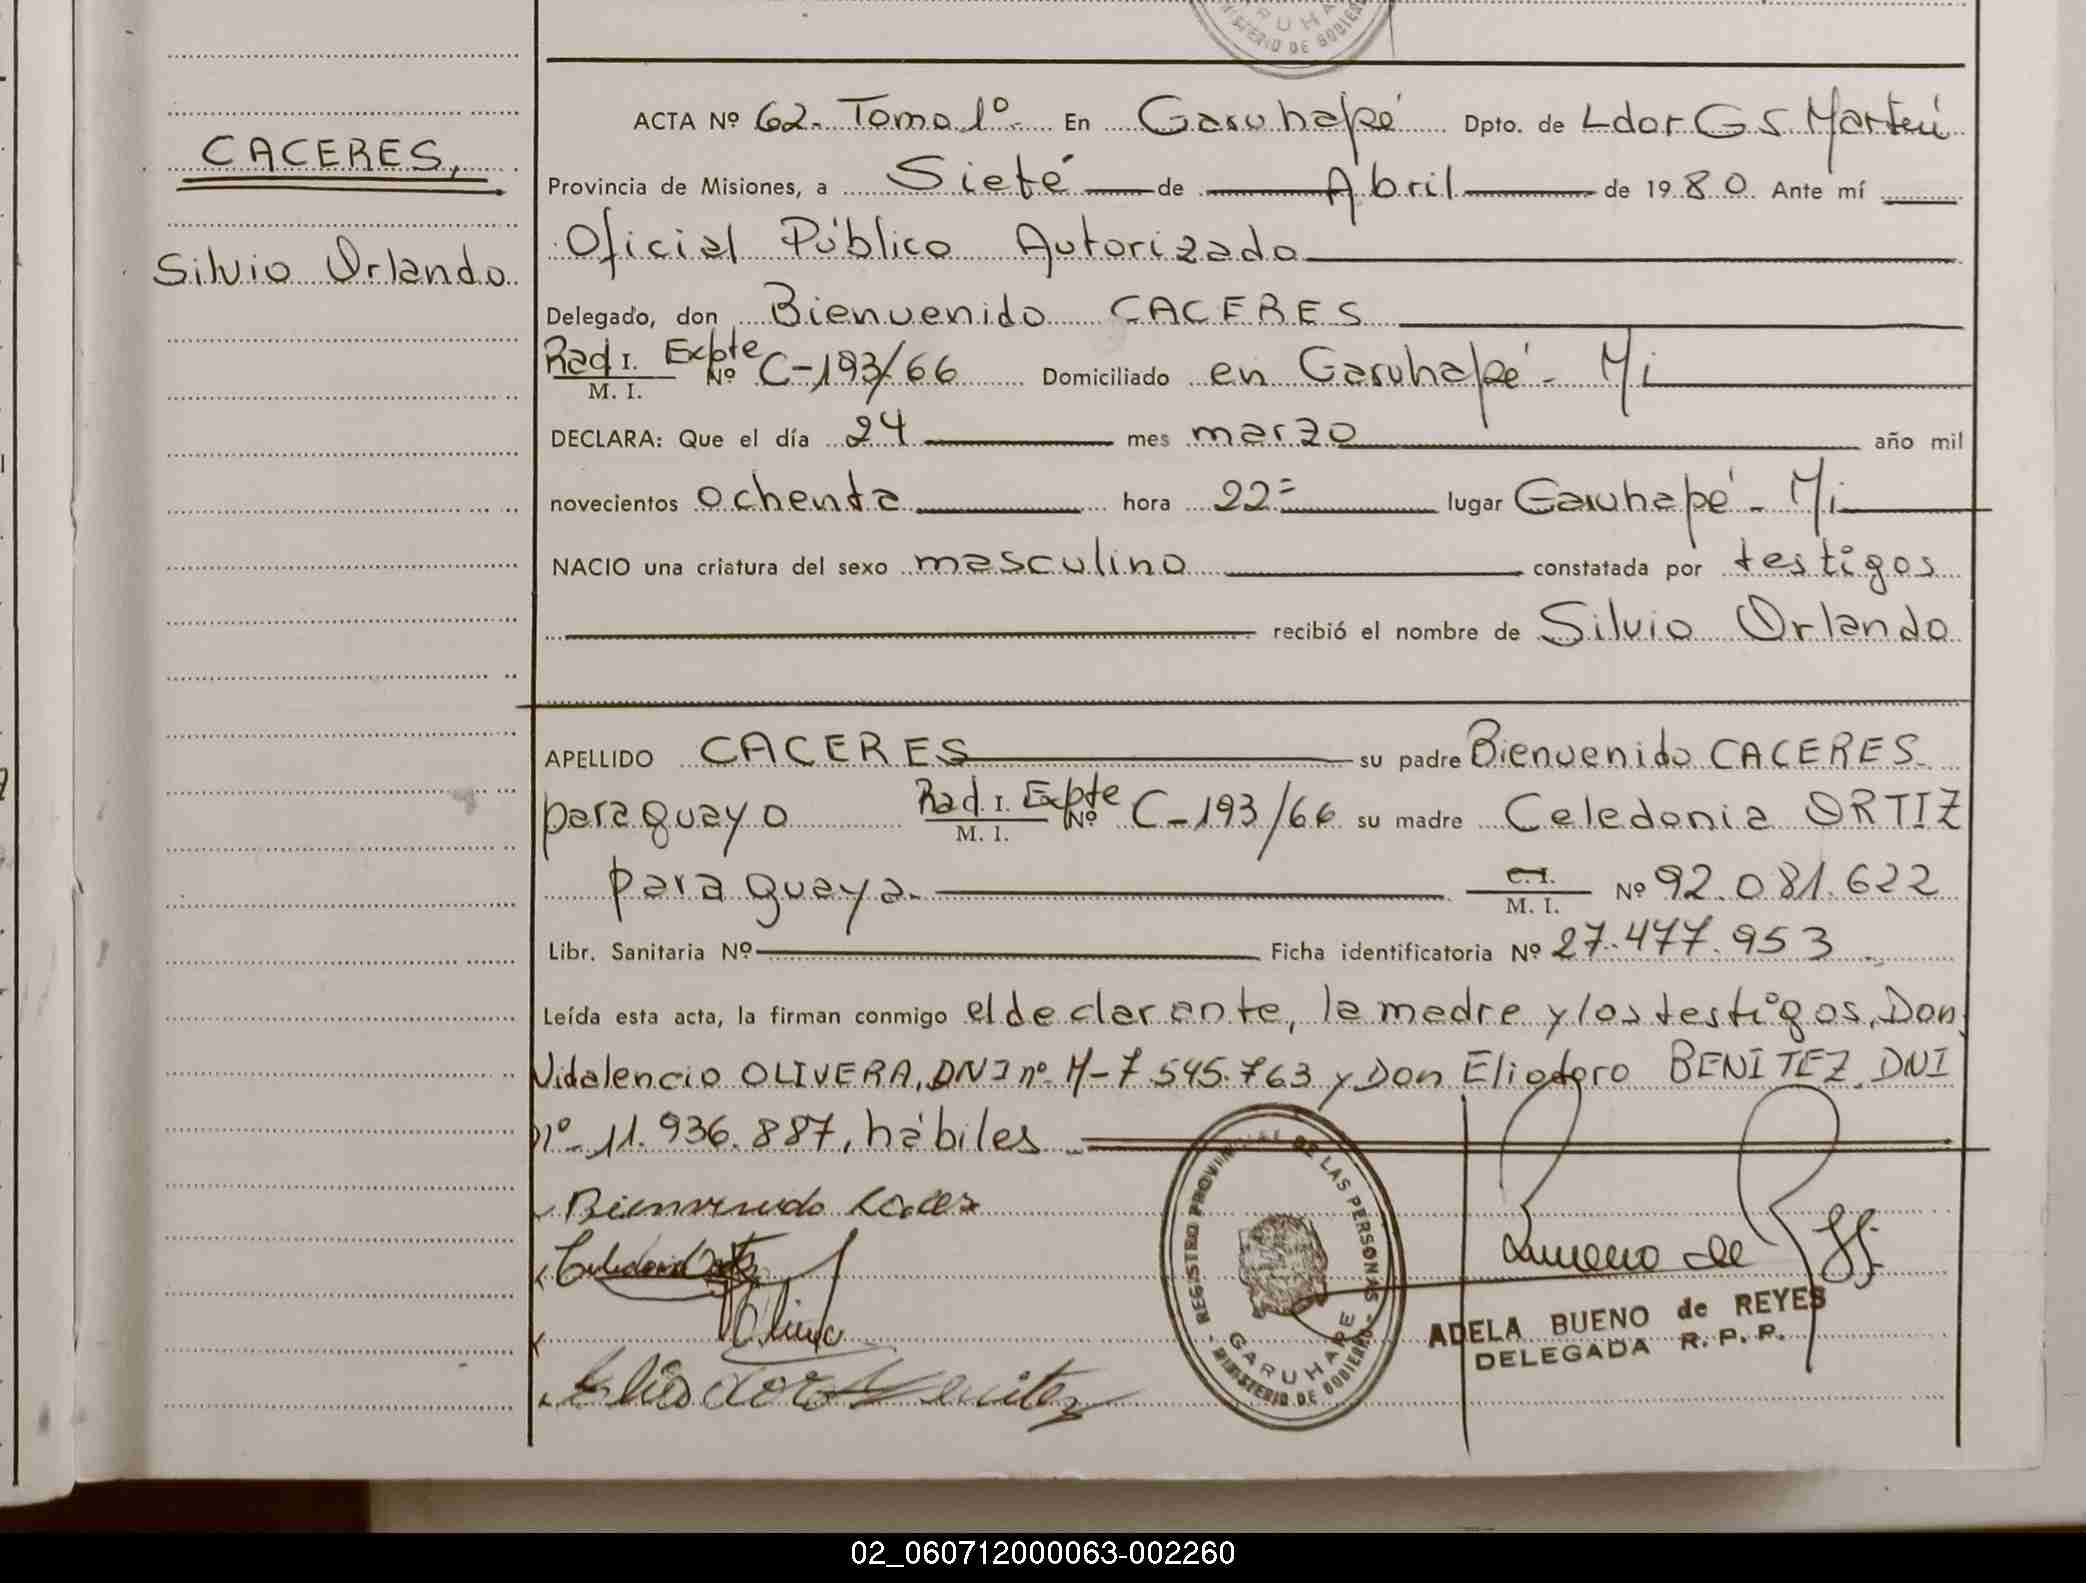 ACTA Nº 62. Tomo 1º. En Garuhapé Dpto. de Ldor G S Martín
CACERES,
Provincia de Misiones, a Siete de Abril de 1980. Ante mí
Oficial Público Autorizado
Silvio Orlando
Delegado, don Bienvenido CACERES
Rad. I. Expte
M. I. Nº C-193/66 Domiciliado en Garuhapé - Mi
DECLARA: Que el día 24 mes marzo año mil
novecientos ochenta hora 22= lugar Garuhapé - Mi
NACIO una criatura del sexo masculino constatada por testigos
recibió el nombre de Silvio Orlando
APELLIDO CACERES su padre Bienvenido CACERES.
paraguayo Rad. I. Expte M. I. Nº C-193/66 su madre Celedonia ORTIZ
paraguaya. C. I. M. I. Nº 92.081.622
Libr. Sanitaria Nº Ficha identificatoria Nº 27.477.953
Leída esta acta, la firman conmigo el declarante, la madre y los testigos, Don
Vidalencio OLIVERA, DNI nº M-7.545.763 y Don Eliodoro BENITEZ. DNI
nº 11.936.887, hábiles
Bienvenido
Celedonia Ortiz
Eliodoro Benitez
REGISTRO PROVINCIAL DE LAS PERSONAS
GARUHAPE
MINISTERIO DE GOBIERNO
ADELA BUENO de REYES
DELEGADA R. P. P.
02_060712000063-002260